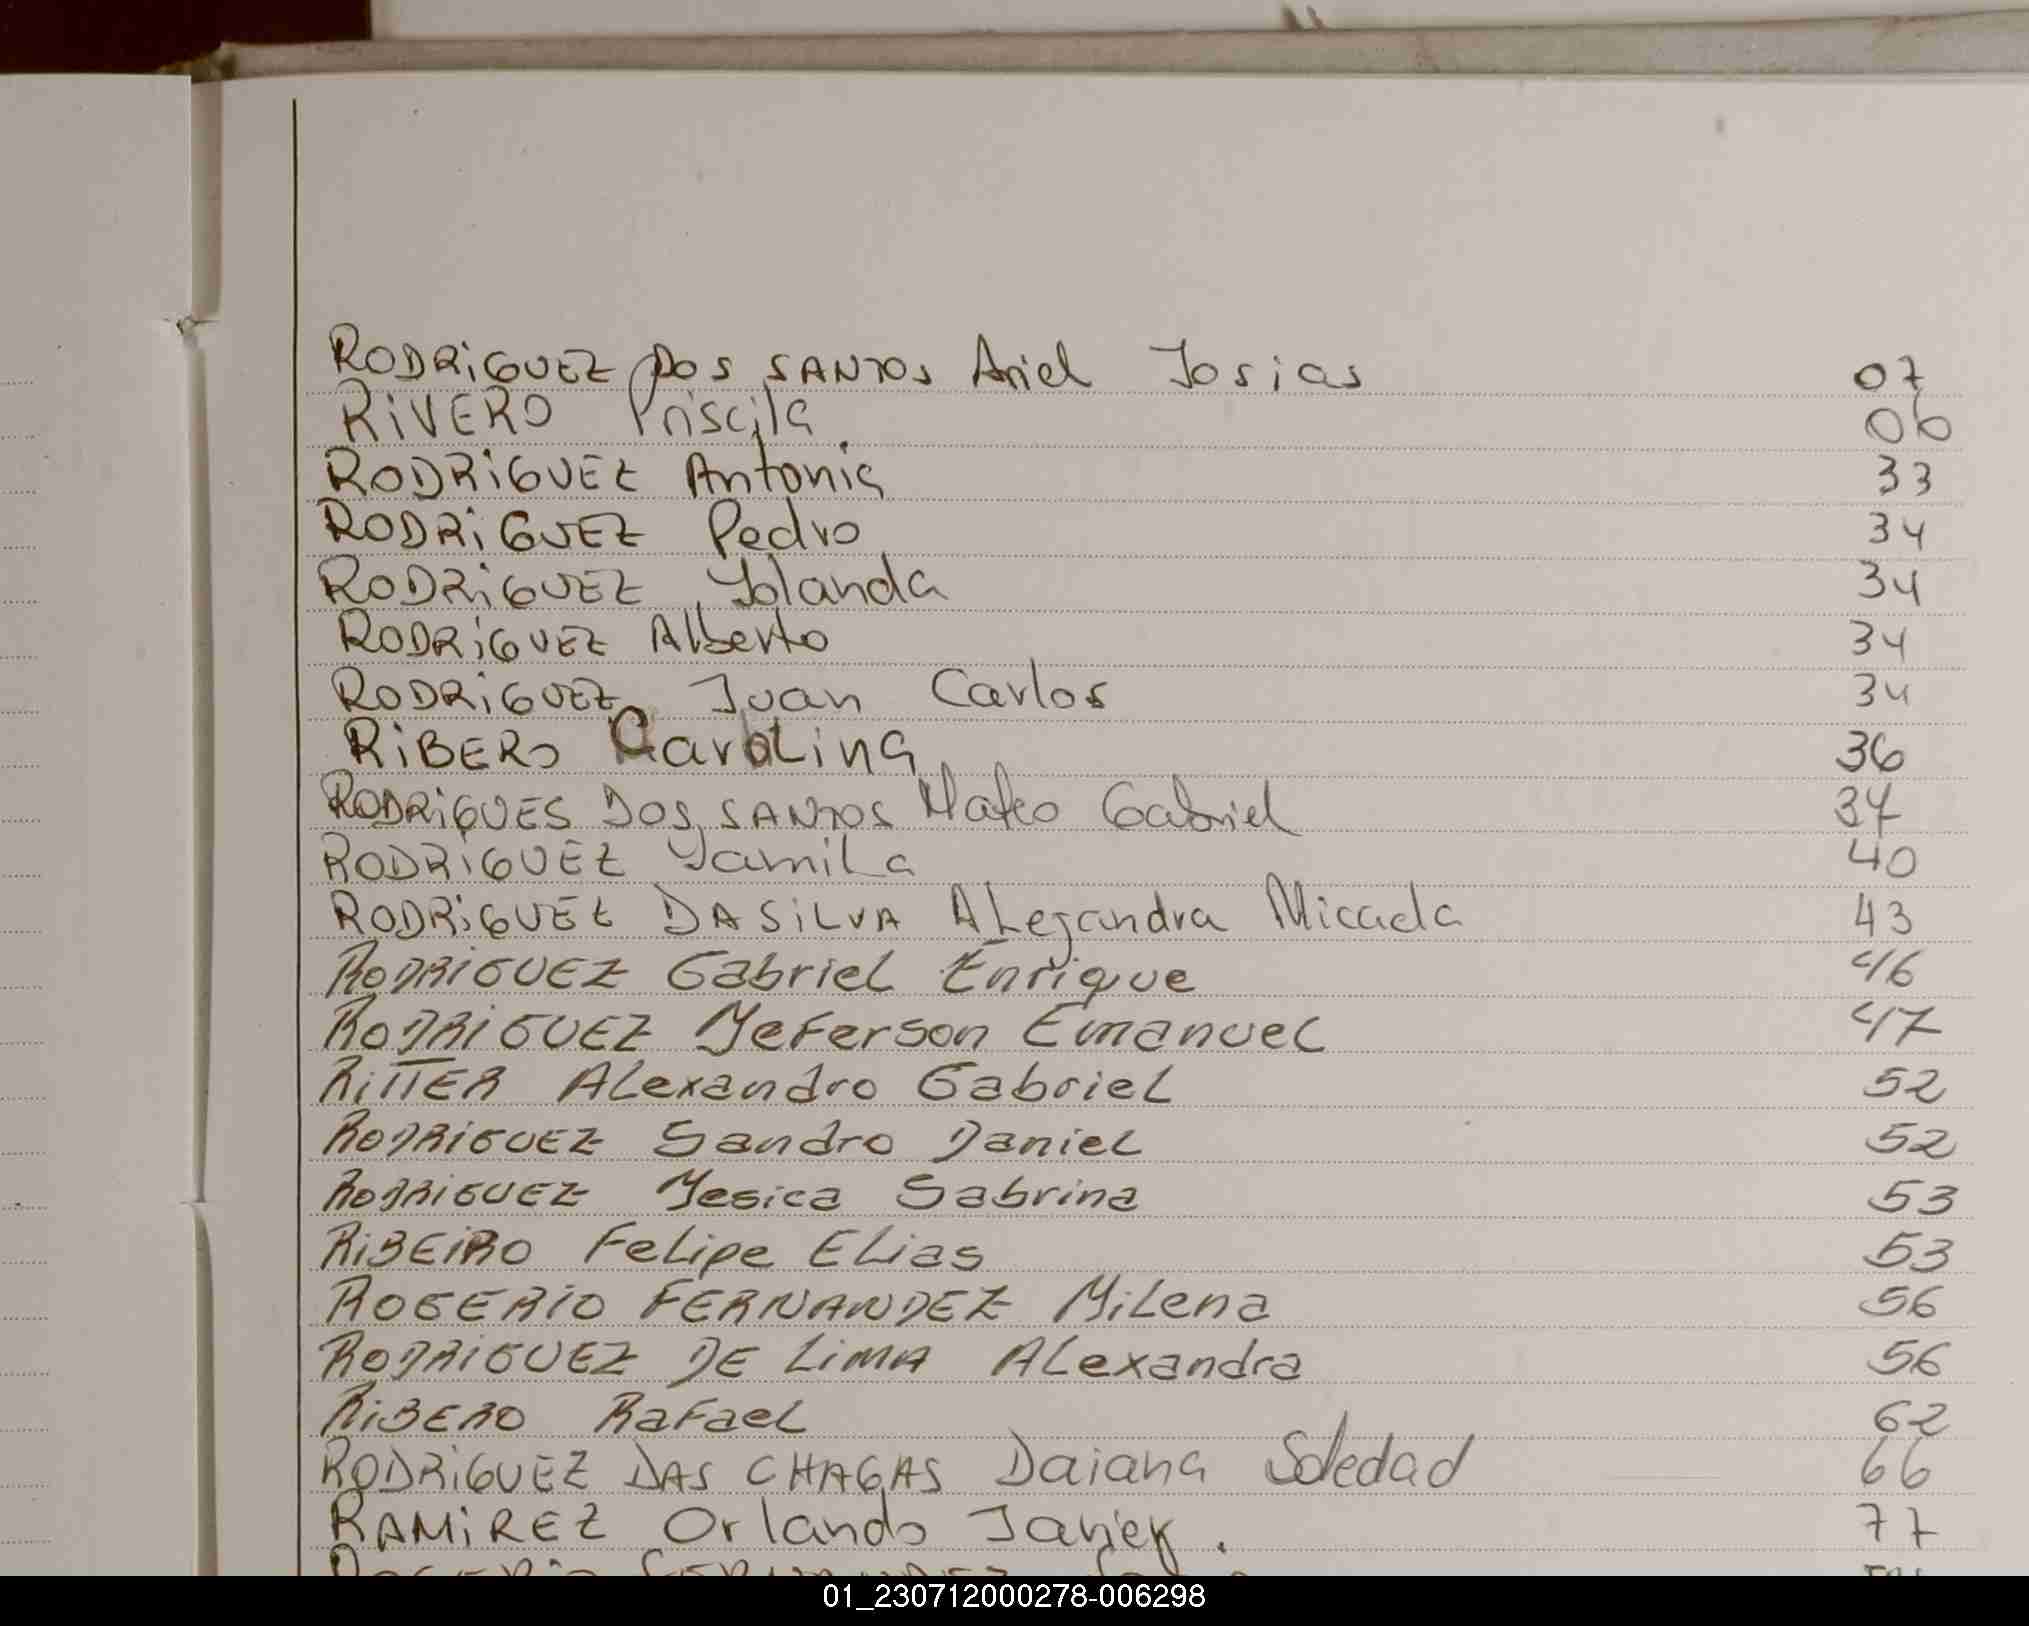 RODRIGUEZ DOS SANTOS Ariel Josias 07
RIVERO Priscila. 06
RODRIGUEZ Antonia 33
RODRIGUEZ Pedro 34
RODRIGUEZ Yolanda 34
RODRIGUEZ Alberto 34
RODRIGUEZ Juan Carlos 34
RIBERO Carolina 36
RODRIGUES DOS SANTOS Mateo Gabriel 37
RODRIGUEZ Yamila 40
RODRIGUEZ DA SILVA Alejandra Micaela 43
RODRIGUEZ Gabriel Enrique 46
RODRIGUEZ Yeferson Emanuel 47
RITTER Alexandro Gabriel 52
RODRIGUEZ Sandro Daniel 52
RODRIGUEZ Yesica Sabrina 53
RIBEIRO Felipe Elias 53
ROGERIO FERNANDEZ Milena 56
RODRIGUEZ DE LIMA Alexandra 56
RIBERO Rafael 62
RODRIGUEZ DAS CHAGAS Daiana Soledad 66
RAMIREZ Orlando Javier. 77
01_230712000278-006298